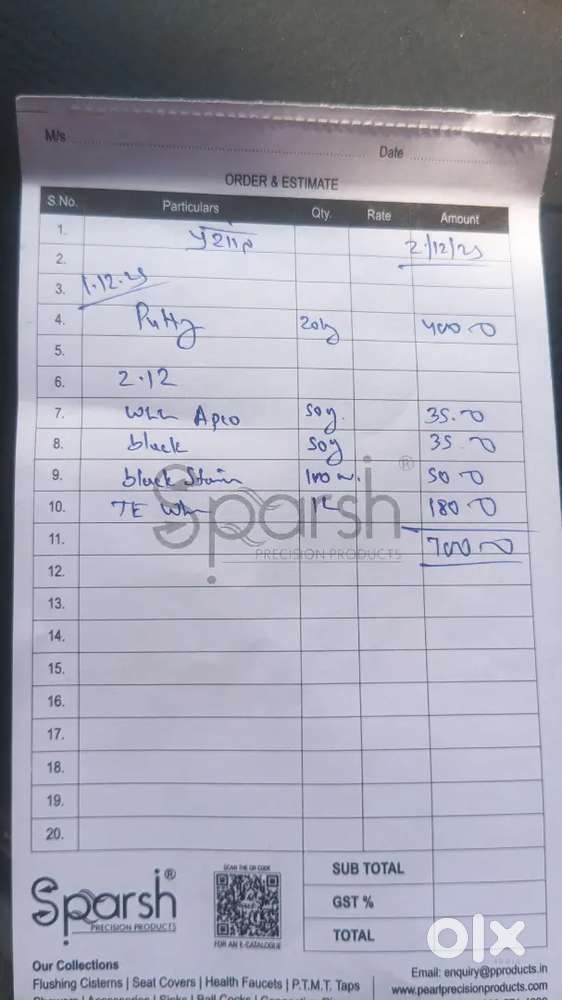 M/s
Date
ORDER & ESTIMATE
S.No. Particulars Qty. Rate Amount
1. 2/12/25
2.
3. 1.12.25
4. Putty 20kg 400.00
5.
6. 2.12
7. Apco 50g. 35.00
8. black 50g 35.00
9. black Stain 100 50.00
10. TE 1L 180.00
11. 700.00
12.
13.
14.
15.
16.
17.
18.
19.
20.
Sparsh®
PRECISION PRODUCTS
SUB TOTAL
GST %
TOTAL
SCAN THE QR CODE
FOR AN E-CATALOGUE
Sparsh®
PRECISION PRODUCTS
olx
INDIA
Our Collections
Flushing Cisterns | Seat Covers | Health Faucets | P.T.M.T. Taps
Email: enquiry@pproducts.in
www.pearlprecisionproducts.com